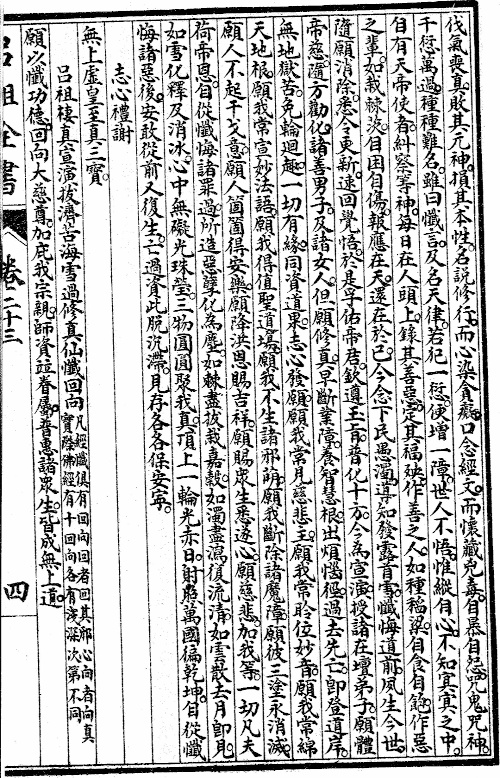 伐氣喪真敗其元神損其本性名說修行而心染貪癡口念經文而懷藏兇毒自暴自怨咒鬼咒神
千愆萬過種種難名雖曰懺言及名天律若犯一愆便增一障世人不悟惟縱自心不知冥冥之中
自有天帝使者糾察等神每日在人頭上錄其善惡定其福殃作善之人如種稻粱自食自飽作惡
之輩如栽棘茨自困自傷報應在天還在於己今念下民愚濁導知發露首雪懺悔道前夙生今世
隨願消除悉令更新速回覺悟於是孚佑帝君欽遵玉旨普化十方今為宣演授諸在壇弟子願體
帝慈隨方勸化諸善男子及諸女人但願修真早斷業障養智慧根出煩惱徑過去先亡即登道岸
無地獄苦免輪迴趣一切有緣同資道果志心發願願我常見慈悲主願我常聆位妙音願我常綿
天地根願我常宣妙法語願我得值聖道場願我不生諸邪萠願我斷除諸魔障願彼三塗永消滅
願人不起干戈意願人箇箇得安樂願降洪恩賜吉祥願賜眾生悉遂心願慈悲加我等一切凡夫
荷帝恩自從懺悔諸罪過所造惡孽化為塵如棘盡拔栽嘉穀如濁盡瀉復流清如雪散去月即見
如雪化釋及消冰心中無礙光珠瑩三物圓圓聚我真頂上一輪光赤日射照萬國偏乾坤自從懺
悔諸惡後安敢從前又復生亡過資此脫沉滯見存各各保安寧
志心禮謝
無上虛皇至真三寶
呂祖棲真宣演拔濟苦海雪過修真仙懺回向凡經懺俱有回向回者回其邪心向者向真實際佛經有十回向各有淺深次第不同
願以懺功德回向大慈尊加庇我宗親師資竝眷屬普惠諸眾生皆成無上道
呂祖全書
卷二十三
四